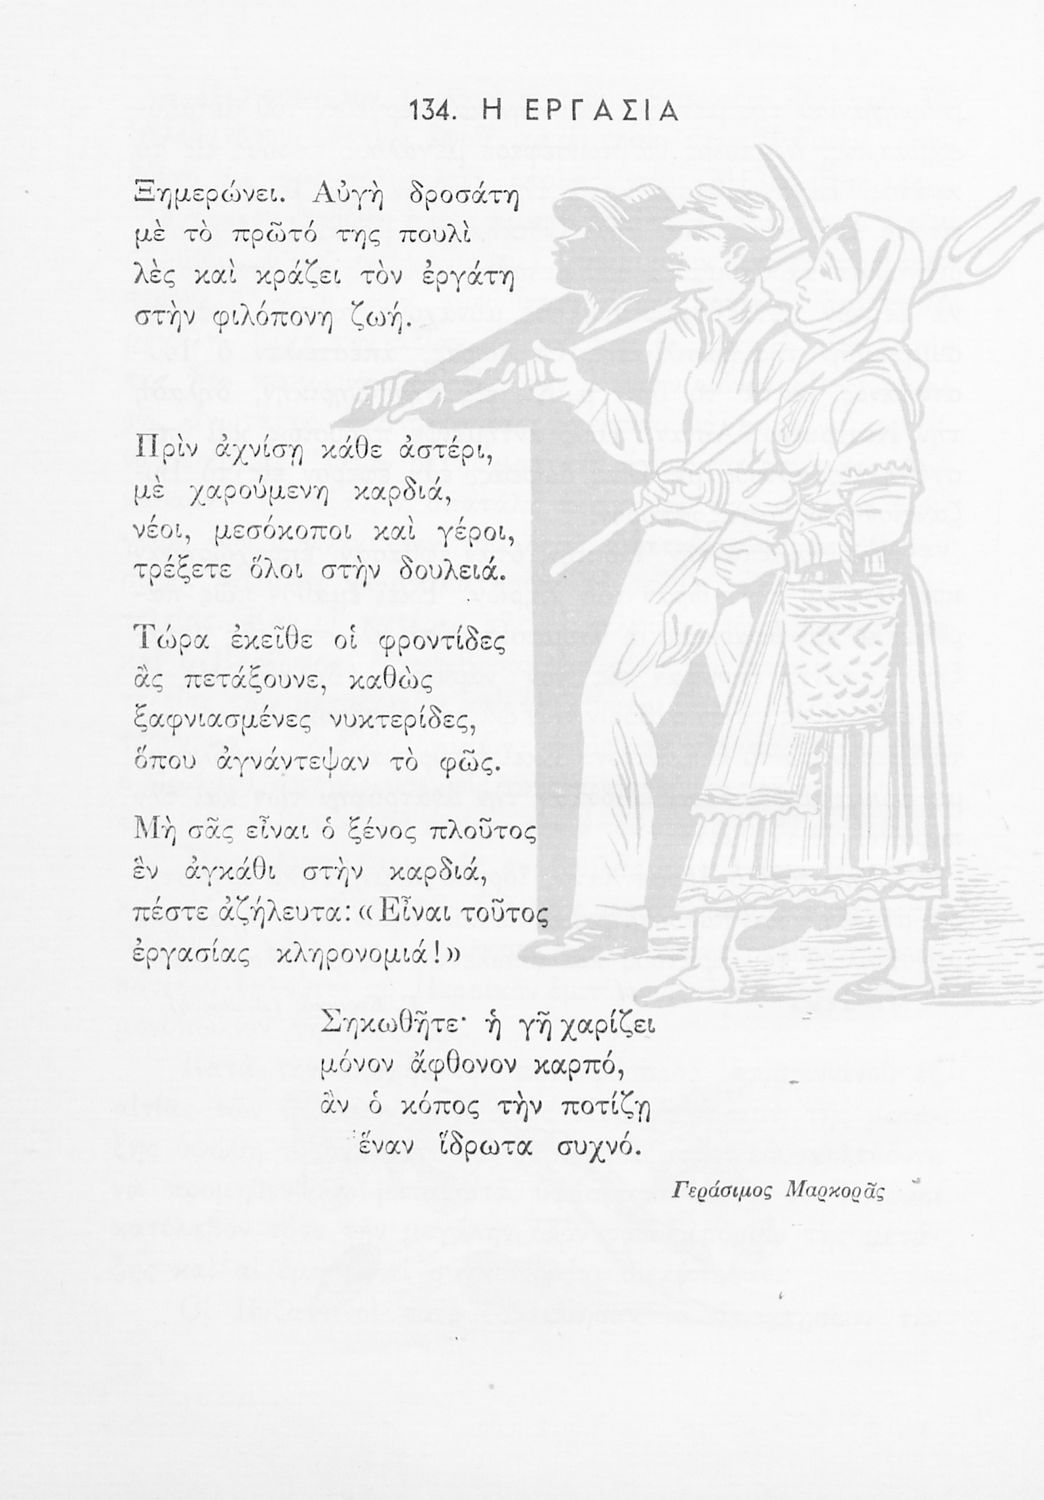 134. Η ΕΡΓΑΣΙΑ
Ξημερώνει. Αὐγὴ δροσάτη
μὲ τὸ πρῶτό της πουλὶ
λὲς καὶ κράζει τὸν ἐργάτη
στὴν φιλόπονη ζωή.
Πρὶν ἀχνίσῃ κάθε ἀστέρι,
μὲ χαρούμενη καρδιά,
νέοι, μεσόκοποι καὶ γέροι,
τρέξετε ὅλοι στὴν δουλειά.
Τώρα ἐκεῖθε οἱ φροντίδες
ἂς πετάξουνε, καθὼς
ξαφνιασμένες νυκτερίδες,
ὅπου ἀγνάντεψαν τὸ φῶς.
Μὴ σᾶς εἶναι ὁ ξένος πλοῦτος
ἓν ἀγκάθι στὴν καρδιά,
πέστε ἀζήλευτα: «Εἶναι τοῦτος
ἐργασίας κληρονομιά!»
Σηκωθῆτε· ἡ γῆ χαρίζει
μόνον ἄφθονον καρπό,
ἂν ὁ κόπος τὴν ποτίζῃ
ἕναν ἵδρωτα συχνό.
Γεράσιμος Μαρκορᾶς